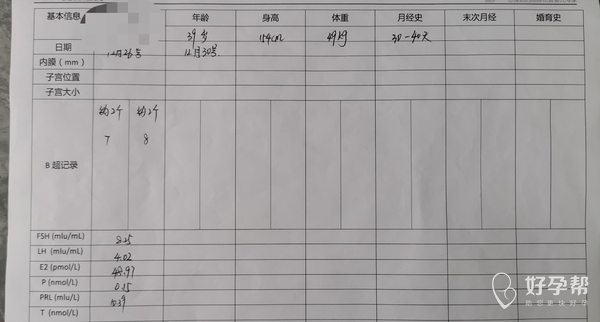 基本信息 年龄 身高 体重 月经史 末次月经 婚育史
39岁 154cm 49kg 30-40天
日期 12月26号 12月30号
内膜(mm)
子宫位置
子宫大小
B超记录
7 8
FSH (mlu/mL) 8.25
LH (mlu/mL) 4.02
E2 (pmol/L) 48.97
P (nmol/L) 0.15
PRL (mlu/L)
T (nmol/L)
好孕帮
助您更快好孕